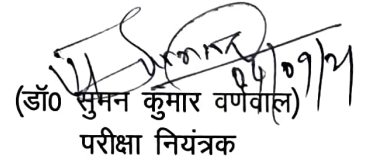 04/09/21
(डॉ0 सुमन कुमार वर्णवाल)
परीक्षा नियंत्रक